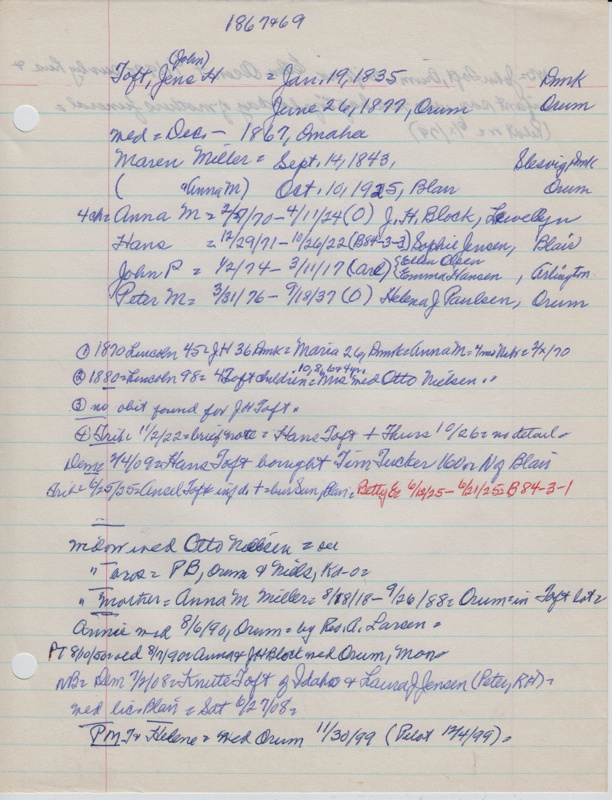 1867+69
(John)
Toft, Jens H = Jan. 19, 1835 Dmk
June 26, 1877, Orum Orum
med = Dec. - 1867, Omaha
Maren Miller = Sept. 14, 1843, Slesvig, Dmk
( Anna M) Oct. 10, 1925, Blair Orum
4 ch = Anna M = 70 - 4/11/24 (O) J. H. Block, Lewellyn
Hans = 12/29/71 - 10/26/22 (B84-3-3) Sophie Jensen, Blair
John P = 1/2/74 - 3/11/17 (Arl) {Ellen Olsen
Emma Hansen, Arlington
Peter M = 3/31/76 - 9/18/37 (O) Helena J Paulsen, Orum
① 1870 Lincoln 45 = JH 36 Dmk = Maria 26, Dmk = Anna M = 4 mos Nebr = 70
10, 8, 6 + 4 yrs
② 1880 = Lincoln 98 = 4 Toft children = Mrs med Otto Nielsen ..
③ no obit found for JH Toft ..
④ Trib = 11/2/22 = brief note = Hans Toft + Thurs 10/26 = no detail =
Dem = 09 = Hans Toft bought Tim Tucker 160 = N of Blair
Trib = 6/25/25 = Ansel Toft inf dt + = bur Sun, Blair = Betty E = 6/12/25 - 6/21/25 = B 84-3-1
widow med Otto Nielsen =
" = PB, Orum & Niels, =
" Mother = Anna M Miller = 18 - 9/26/88 = Orum = in Toft lot =
Annie med 8/6/90, Orum = by Rev. A. Larsen =
PT 8/10/50 = 90 = Anna & JH Block med Orum, Mon =
NB = Dem 7/2/08 = Knute Toft of Idaho & Laura J Jensen (Peter, RH) =
med lic = Blair = Sat 6/27/08 =
PM T & Helene = med Orum 11/30/99 (Pilot 12/4/99) =